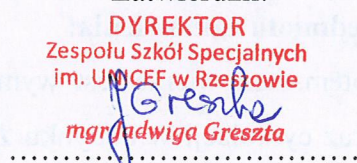 DYREKTOR
Zespołu Szkół Specjalnych
im. UNICEF w Rzeszowie
Greszta
mgr Jadwiga Greszta